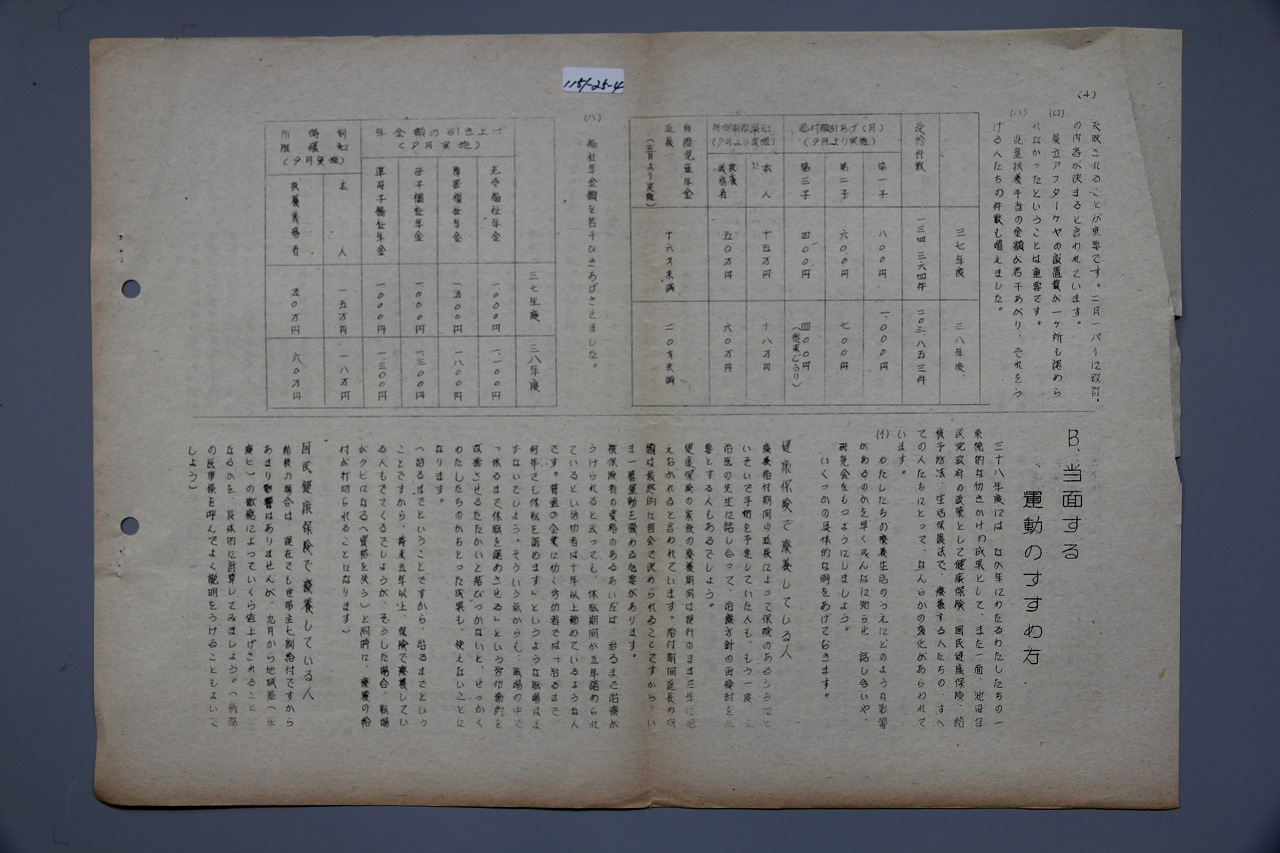 1151-25-4
(4)
反映されることが重要です。二月一パイに改訂・
の内容が決まると言われています。
(ロ) 県立アフターケヤの設置費が一ヶ所も認めら
れなかったということは重要です。
(ハ) 児童扶養手当の金額が若干あがり、それをう
ける人たちの件数も増えました。
三七年度 三八年度
受給件数 一三四、三六四件 二〇三、八五三件
給付額引あげ(月)(9月より実施)
第一子 八〇〇円 一、〇〇〇円
第二子 六〇〇円 七〇〇円
第三子 四〇〇円 四〇〇円(従来どうり)
(9月より実施)
本人 十五万円 十八万円
扶養義務者 五〇万円 六〇万円
児童年金延長(五月より実施) 十六才未満 二〇才未満
(八) 福祉年金額を若干ひきあげさせました。
三七年度 三八年度
年金額の引き上げ(9月実施)
老令福祉年金 一、〇〇〇円 一、一〇〇円
障害福祉年金 一、五〇〇円 一、八〇〇円
母子福祉年金 一、〇〇〇円 一、三〇〇円
準母子福祉年金 一、〇〇〇円 一、三〇〇円
所得制限緩和(9月実施)
本人 一五万円 一八万円
扶養義務者 五〇万円 六〇万円
B、当面する
運動のすすめ方.
三十八年度には、なが年にわたるわたしたちの一
楽院的な切さかけの成果として、また一面、池田自
民党政府の政策として健康保険、国民健康保険、結
核予防法、生活保護法で、療養する人たちの、すべ
ての人たちにとって、なんらかの変化があらわれて
います。
(イ) わたしたちの療養生活のうえにどのような影響
があるのかを早くみんなに知らせ、話し合いや、
研究会をもつようにしましょう。
いくつかの具体的な例をあげておきます。
健康保険で療養している人
療養給付期間の延長によって保険のあるうちにと
いそいで手術を予定していた人も、もう一度、主
治医の先生に話し合って、治療方針の再検討を必
要とする人もあるでしょう。
健康保険の家族の療養期間は現行のまま三年に据
えおかれると言われています。給付期間延長の問
題は最終的に国会で決められることですから、い
ま一番運動を強める必要があります。
被保険者の資格のあるあいだは、治るまで治療が
うけられると云っても、休職期間が五年認められ
ているという労仂者は十年以上勤めているような人
です。普通の企業に仂く労仂者では「治るまで
何年でも休職を認めます」というような職場はま
ずないでしょう。そういう点からも、職場の中で
「治るまで休職を認めさせる」という労仂協約を
改善させるたたかいと結びつかないと、せっかく
わたしたちのかちとった成果も、使えないことに
なります。
(治るまでということですから、治るまでという
ことですから、将来五年以上、保険で療養してい
る人もでてくるでしょうが、そうした場合、職場
がクビになる(資格を失う)と同時に、療養の給
付が打切られることになります)
国民健康保険で療養している人
結核の場合は、現在でも世帯主七割給付ですから
あまり影響はありませんが、九月から地域差(医
療ヒ)の撤廃によっていくら値上げされることに
なるかを、具体的に計算してみましょう。(病院
の医事係を呼んでよく説明をうけることもよいで
しょう)